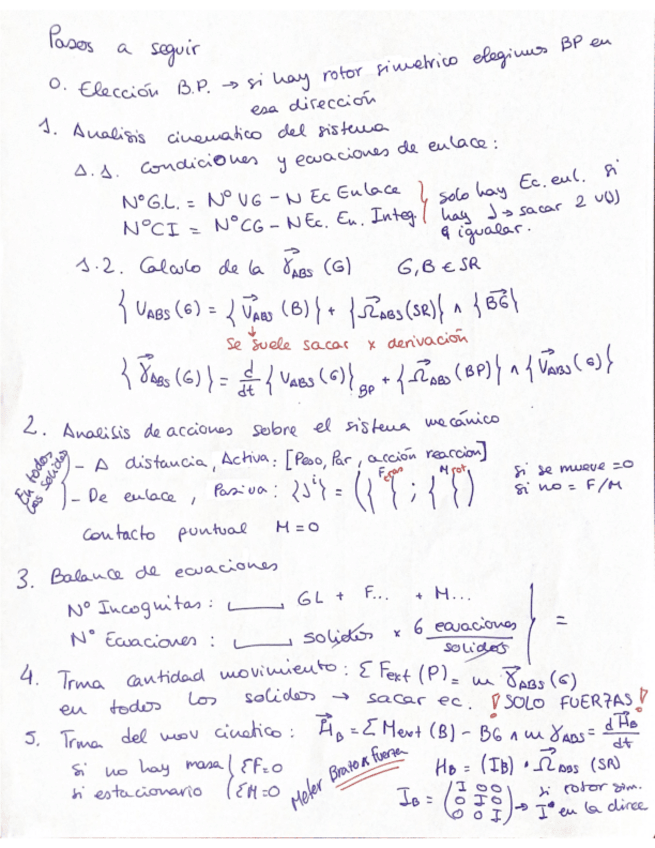 Pasos a seguir
0. Elección B.P. → si hay rotor simetrico elegimos BP en
esa dirección
1. Analisis cinematico del sistema
1.1. Condiciones y ecuaciones de enlace:
NºG.L. = Nº VG - N Ec Enlace
NºCI = NºCG - NEc. En. Integ.
solo hay Ec. enl. si
hay J → sacar 2 v(J)
e igualar.
1.2. Calculo de la γ⃗ABS (G) G,B ∈ SR
{VABS (G) = {V⃗ABS (B)} + {Ω⃗ABS(SR)} ∧ {B⃗G}
Se suele sacar x derivación
{γ⃗ABS (G)} = d/dt {VABS (G)}BP + {Ω⃗ABS (BP)} ∧ {V⃗ABS (G)}
2. Analisis de acciones sobre el sistema mecánico
En todos los solidos
- A distancia, Activa: [Peso, Par, acción reaccion]
- De enlace, Pasiva: {J^i} = ({F} ; {M})
si se mueve = 0
si no = F/M
contacto puntual M = 0
3. Balance de ecuaciones
Nº Incognitas: ___ GL + F... + M...
Nº Ecuaciones: ___ solidos x 6 ecuaciones/solidos } =
4. Trma cantidad movimiento: Σ Fext (P) = m γ⃗ABS (G)
en todos los solidos → sacar ec. ¡SOLO FUERZAS!
5. Trma del mov cinetico: H⃗B = Σ Mext (B) - BG ∧ m γABS = dH⃗B/dt
si no hay masa { ΣF=0
si estacionario { ΣM=0
Meter Brazo x fuerza
HB = (IB) · Ω⃗ABS (SR)
IB = (I 0 0
0 I 0
0 0 I) → si rotor sim.
I* en la direcc